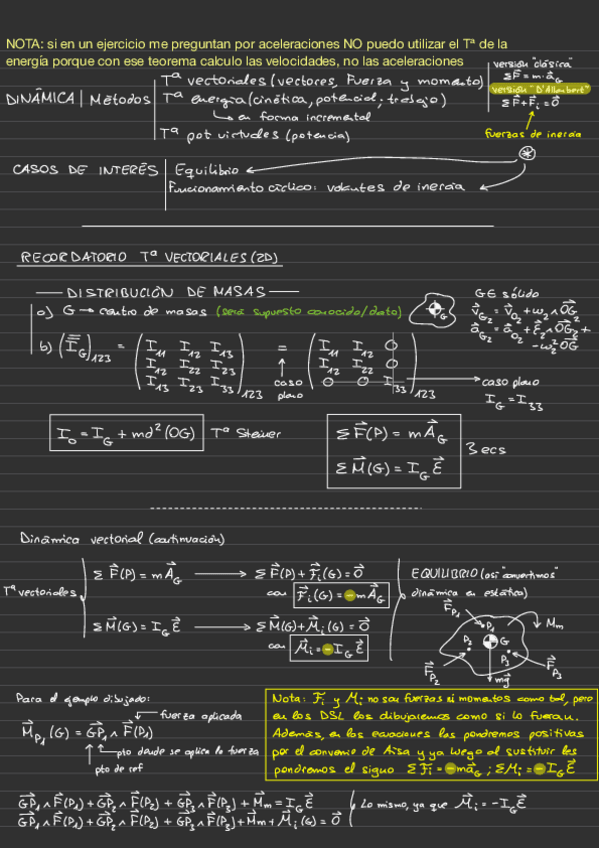 NOTA: si en un ejercicio me preguntan por aceleraciones NO puedo utilizar el Tª de la
energía porque con ese teorema calculo las velocidades, no las aceleraciones
DINÁMICA | Métodos
Tª vectoriales (vectores, Fuerza y momento)
Tª energía (cinética, potencial; trabajo)
↳ en forma incremental
Tª pot virtuales (potencia)
versión "clásica"
ΣF⃗ = m·a⃗_G
versión "D'Alembert"
ΣF⃗ + F⃗_i = 0⃗
fuerzas de inercia
CASOS DE INTERÉS
Equilibrio
Funcionamiento cíclico: volantes de inercia
RECORDATORIO Tª VECTORIALES (2D)
DISTRIBUCIÓN DE MASAS
a) G → centro de masas (será supuesto conocido/dato)
G
G∈ sólido
v⃗_G2 = v⃗_O2 + ω₂∧OG⃗
a⃗_G2 = a⃗_O2 + ξ⃗₂∧OG⃗₂ +
-ω₂²OG⃗
b) (I_G)₁₂₃ = (I₁₁ I₁₂ I₁₃ = (I₁₁ I₁₂ 0
I₁₂ I₂₂ I₂₃ I₁₂ I₂₂ 0
I₁₃ I₂₃ I₃₃)₁₂₃ 0 0 I₃₃)₁₂₃
caso plano
caso plano
I_G = I₃₃
I_O = I_G + md²(OG) Tª Steiner
ΣF⃗(P) = mA⃗_G
ΣM⃗(G) = I_G ξ⃗
3 ecs
Dinámica vectorial (continuación)
Tª vectoriales
ΣF⃗(P) = mA⃗_G → ΣF⃗(P) + F⃗_i(G) = 0⃗
con F⃗_i(G) = -mA⃗_G
ΣM⃗(G) = I_G ξ⃗ → ΣM⃗(G) + M⃗_i(G) = 0⃗
con M⃗_i = -I_G ξ⃗
EQUILIBRIO (así "convertimos"
dinámica en estática)
F⃗_P1
P₁
M_m
P₂
G
P₃
F⃗_P2
mg⃗
F⃗_P3
Para el ejemplo dibujado:
fuerza aplicada
M⃗_P1(G) = GP⃗₁∧F⃗(P₁)
pto donde se aplica la fuerza
pto de ref
Nota: F⃗_i y M⃗_i no son fuerzas ni momentos como tal, pero
en los DSL los dibujaremos como si lo fueran.
Además, en las ecuaciones los pondremos positivas
por el convenio de Aisa y ya luego al sustituir les
pondremos el signo ΣF⃗_i = -ma⃗_G ; ΣM_i = -I_G ξ⃗
GP⃗₁∧F⃗(P₁) + GP⃗₂∧F⃗(P₂) + GP⃗₃∧F⃗(P₃) + M⃗_m = I_G ξ⃗
GP⃗₁∧F⃗(P₁) + GP⃗₂∧F⃗(P₂) + GP⃗₃∧F⃗(P₃) + M_m + M⃗_i(G) = 0⃗
Lo mismo, ya que M⃗_i = -I_G ξ⃗